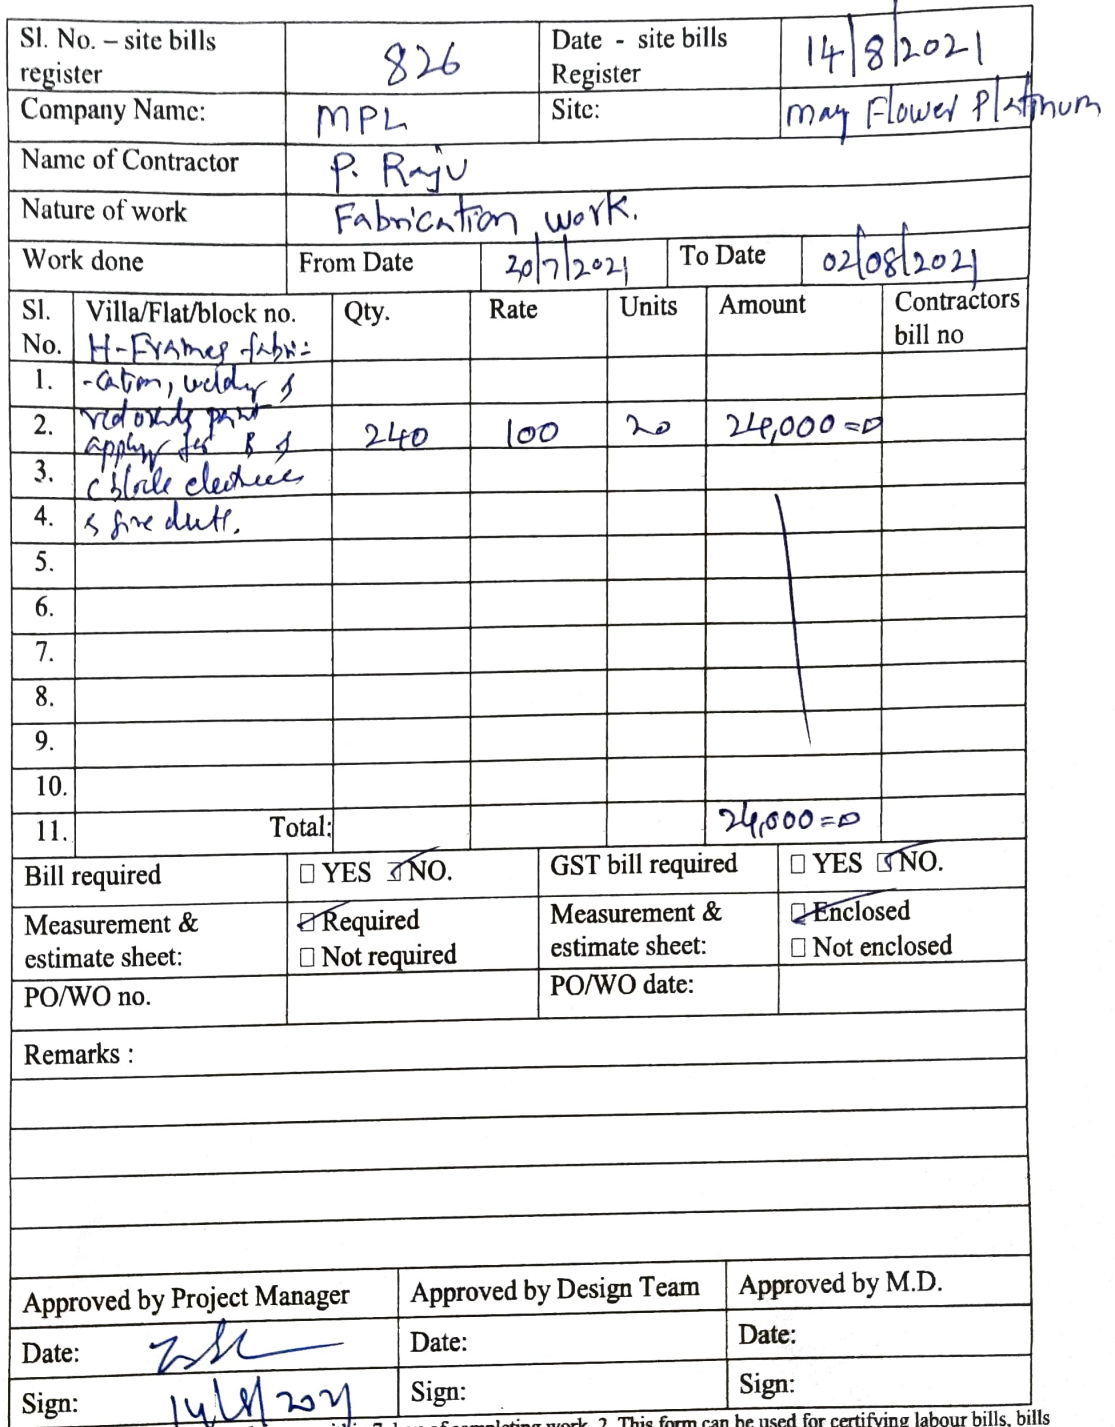 Sl. No. – site bills register 826 Date - site bills Register 14/8/2021
Company Name: MPL Site: May Flower Platinum
Name of Contractor P. Raju
Nature of work Fabrication work.
Work done From Date 30/7/2021 To Date 02/08/2021
Sl. No. Villa/Flat/block no. Qty. Rate Units Amount Contractors bill no
H-Frames fabri-
1. -cation, welding &
2. red oxide paint 240 100 20 24,000=0
apply for B &
3. C block electrical
4. & fire duct.
5.
6.
7.
8.
9.
10.
11. Total: 24,000=0
Bill required YES NO. GST bill required YES NO.
Measurement & estimate sheet: Required Not required Measurement & estimate sheet: Enclosed Not enclosed
PO/WO no. PO/WO date:
Remarks :
Approved by Project Manager Approved by Design Team Approved by M.D.
Date: Date: Date:
Sign: 14/8/2021 Sign: Sign:
7 days of completing work. 2. This form can be used for certifying labour bills, bills